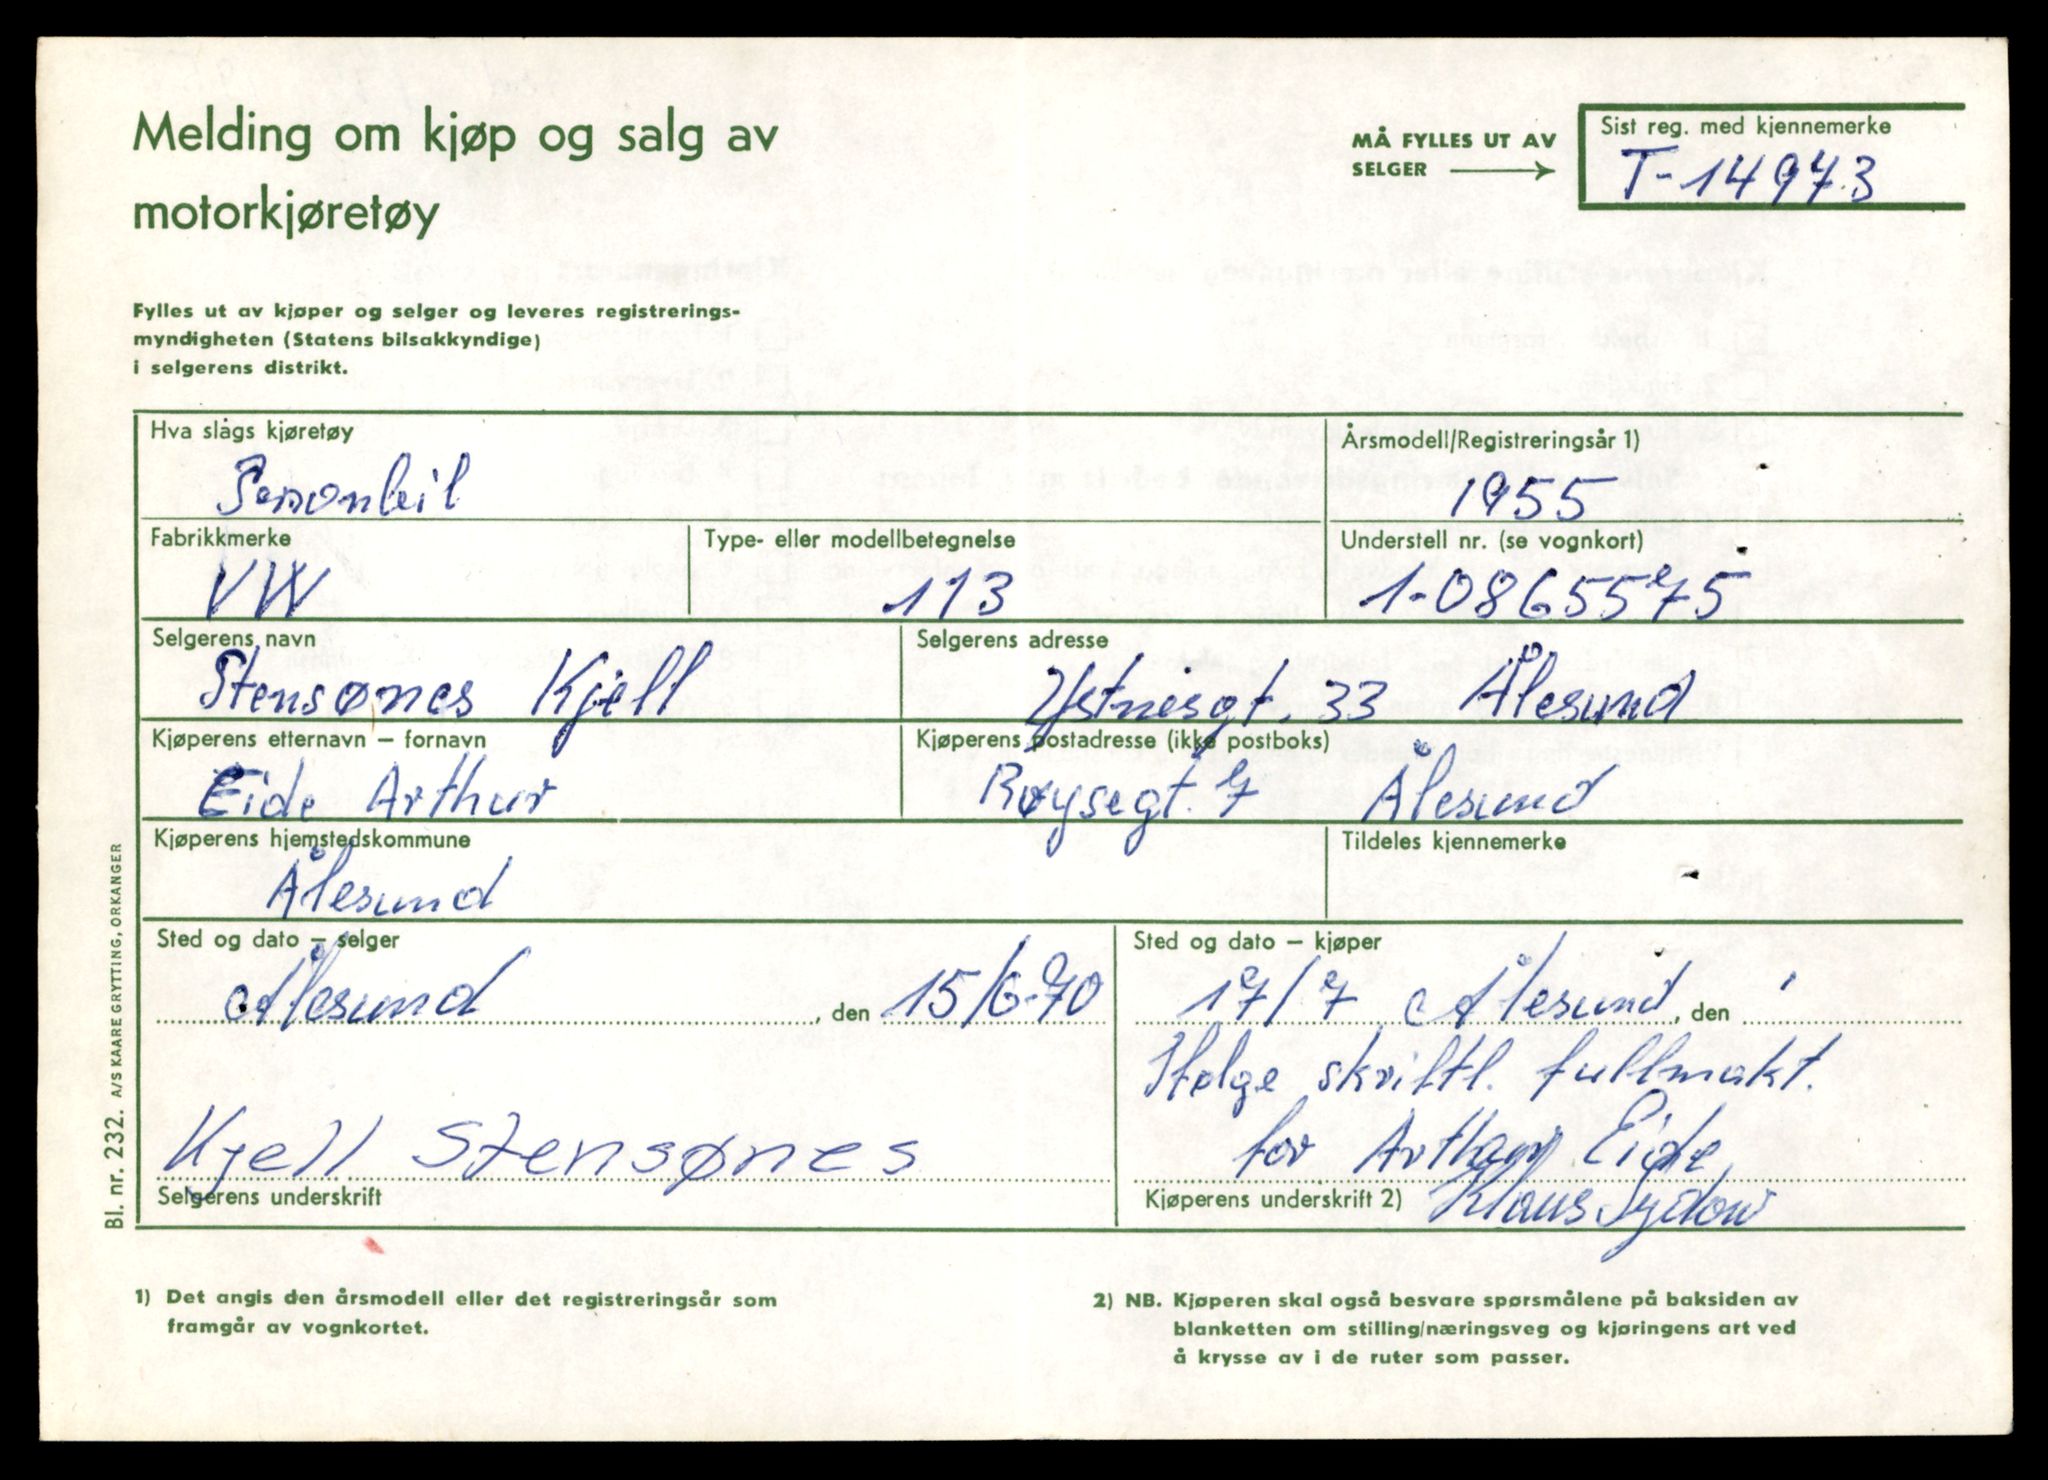 Melding om kjøp og salg av
motorkjøretøy
MÅ FYLLES UT AV
SELGER
Sist reg. med kjennemerke
T-14973
Fylles ut av kjøper og selger og leveres registrerings-
myndigheten (Statens bilsakkyndige)
i selgerens distrikt.
Hva slags kjøretøy
Personbil
Årsmodell/Registreringsår 1)
1955
Fabrikkmerke
VW
Type- eller modellbetegnelse
113
Understell nr. (se vognkort)
1-0865575
Selgerens navn
Stensønes Kjell
Selgerens adresse
Ystnesgt. 33 Ålesund
Kjøperens etternavn – fornavn
Eide Arthur
Kjøperens postadresse (ikke postboks)
Røysegt. 7 Ålesund
Kjøperens hjemstedskommune
Ålesund
Tildeles kjennemerke
Sted og dato – selger
Ålesund, den 15/6-70
Sted og dato – kjøper
17/7 Ålesund, den
Ifølge skriftl. fullmakt.
for Arthur Eide
Kjell Stensønes
Selgerens underskrift
Kjøperens underskrift 2) Klaus Sydow
Bl. nr. 232. A/S KAARE GRYTTING, ORKANGER
1) Det angis den årsmodell eller det registreringsår som
framgår av vognkortet.
2) NB. Kjøperen skal også besvare spørsmålene på baksiden av
blanketten om stilling/næringsveg og kjøringens art ved
å krysse av i de ruter som passer.